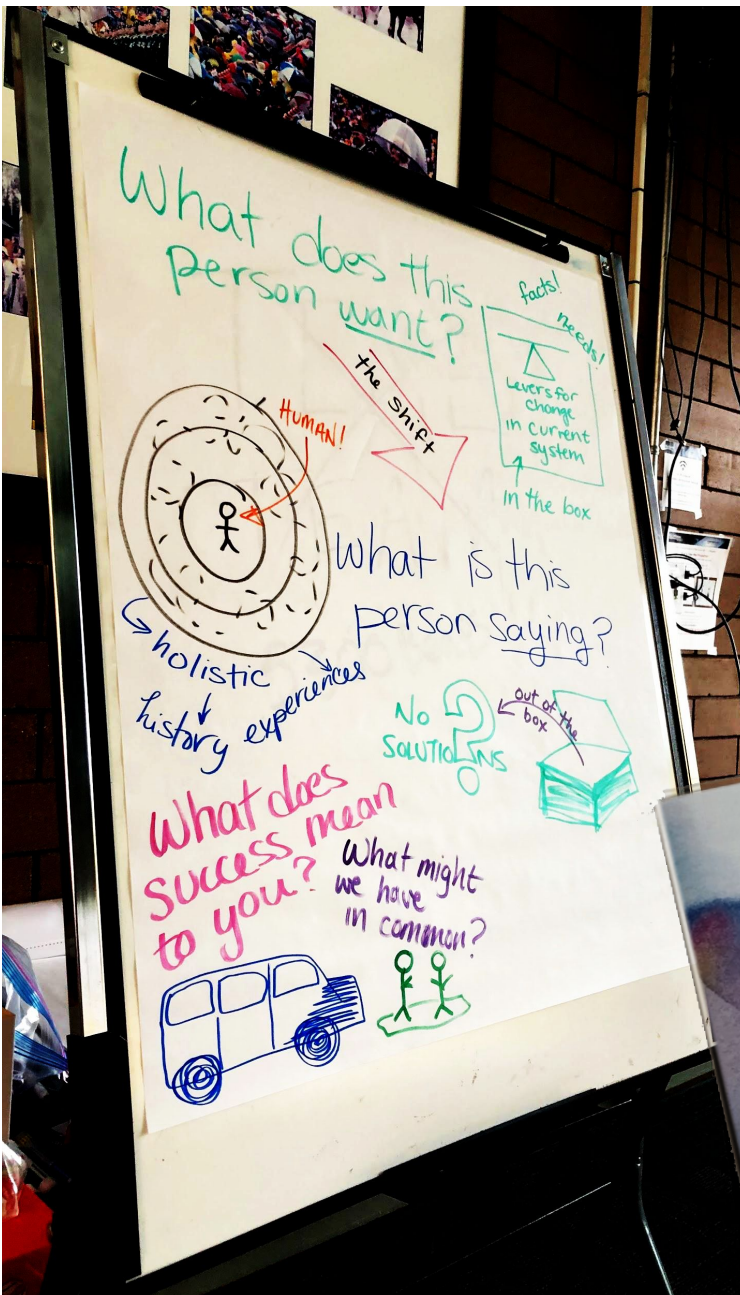 What does this
person want?
facts!
needs!
Levers for
change
in current
system
in the box
the shift
HUMAN!
What is this
person saying?
holistic
history experiences
No
SOLUTIONS
out of the
box
What does
success mean
to you?
What might
we have
in common?